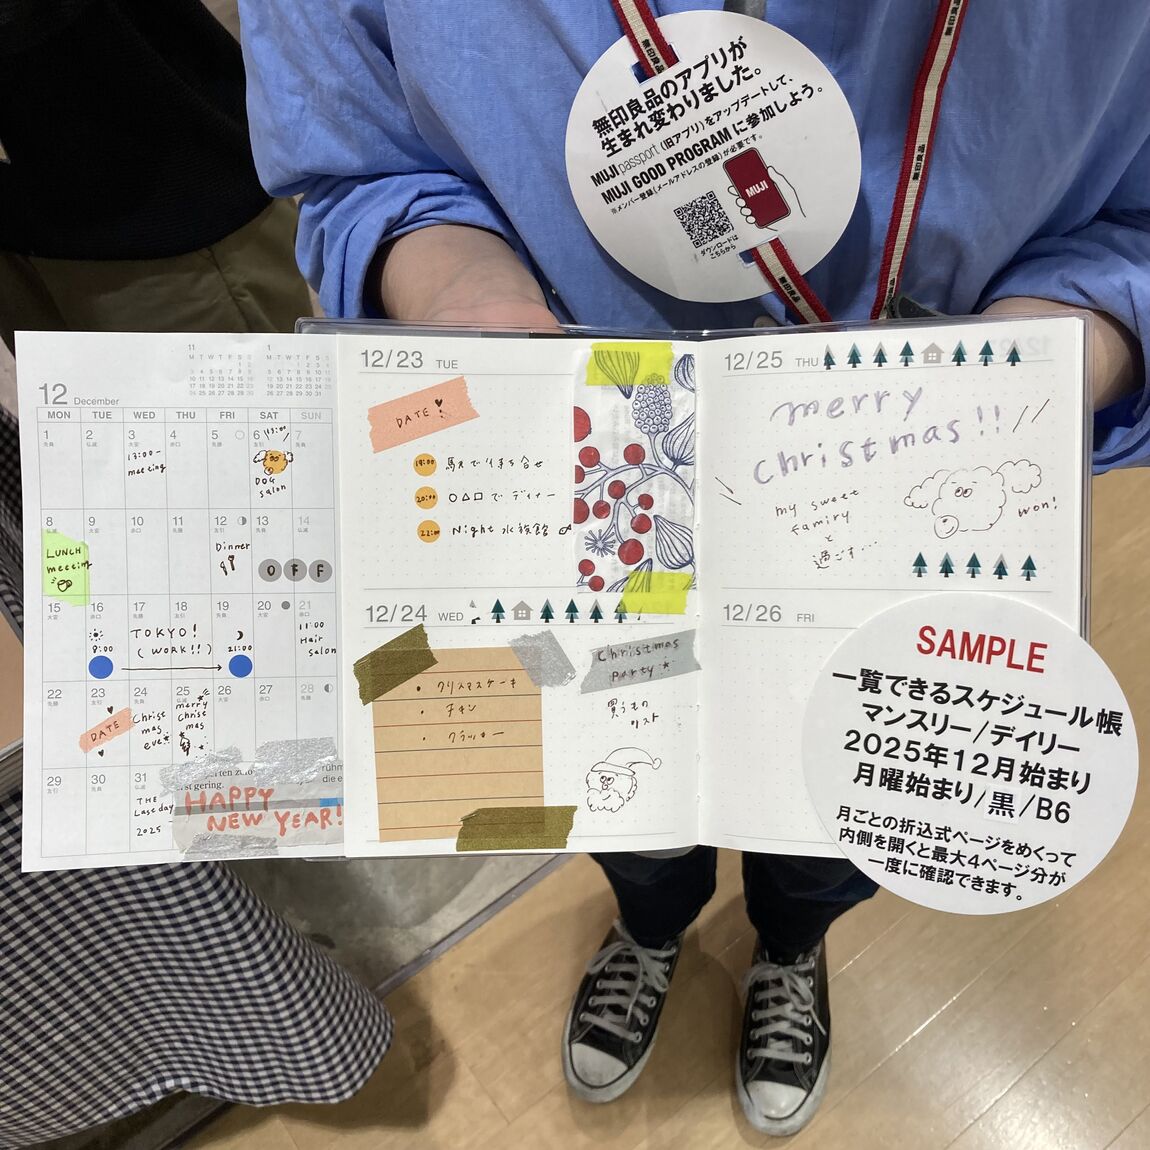 無印良品のアプリが
生まれ変わりました。
MUJI passport（旧アプリ）をアップデートして、
MUJI GOOD PROGRAM に参加しよう。
※メンバー登録（メールアドレスの登録）が必要です。
MUJI
ダウンロードは
こちらから
12 December
MON TUE WED THU FRI SAT SUN
1 2 3 4 5 6 7
13:00~
meeting
13:00
DOG
salon
8 9 10 11 12 13 14
LUNCH
meeting
Dinner
OFF
15 16 17 18 19 20 21
8:00
TOKYO!
(WORK!!)
21:00
11:00
Hair
salon
22 23 24 25 26 27 28
DATE
Christ
mas
eve
merry
Christ
mas
29 30 31
THE
Last day
2025
HAPPY
NEW YEAR!
12/23 TUE
DATE!
19:00 駅で待ち合せ
20:00 ○△□でディナー
22:00 Night 水族館
12/24 WED
・クリスマスケーキ
・チキン
・クラッカー
Christmas
party
買うもの
リスト
12/25 THU
merry
christmas!!
my sweet
famiry
と
過ごす…
won!
12/26 FRI
SAMPLE
一覧できるスケジュール帳
マンスリー/デイリー
2025年12月始まり
月曜始まり/黒/B6
月ごとの折込式ページをめくって
内側を開くと最大4ページ分が
一度に確認できます。